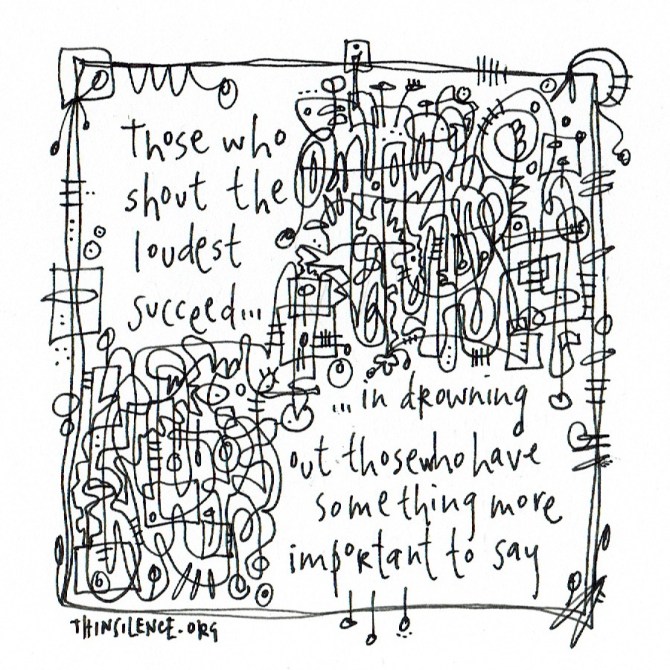 Those who
shout the
loudest
succeed...
...in drowning
out those who have
something more
important to say
THINSILENCE.ORG